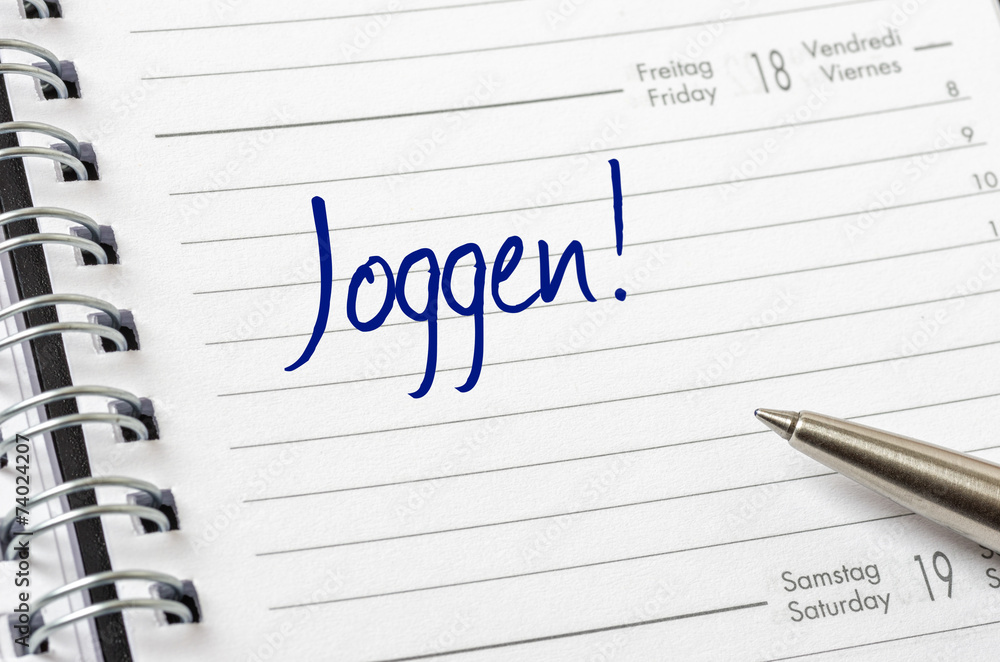 Freitag 18 Vendredi
Friday Viernes
8
9
10
1
Joggen!
Samstag 19 S
Saturday S
Adobe Stock | #74024207